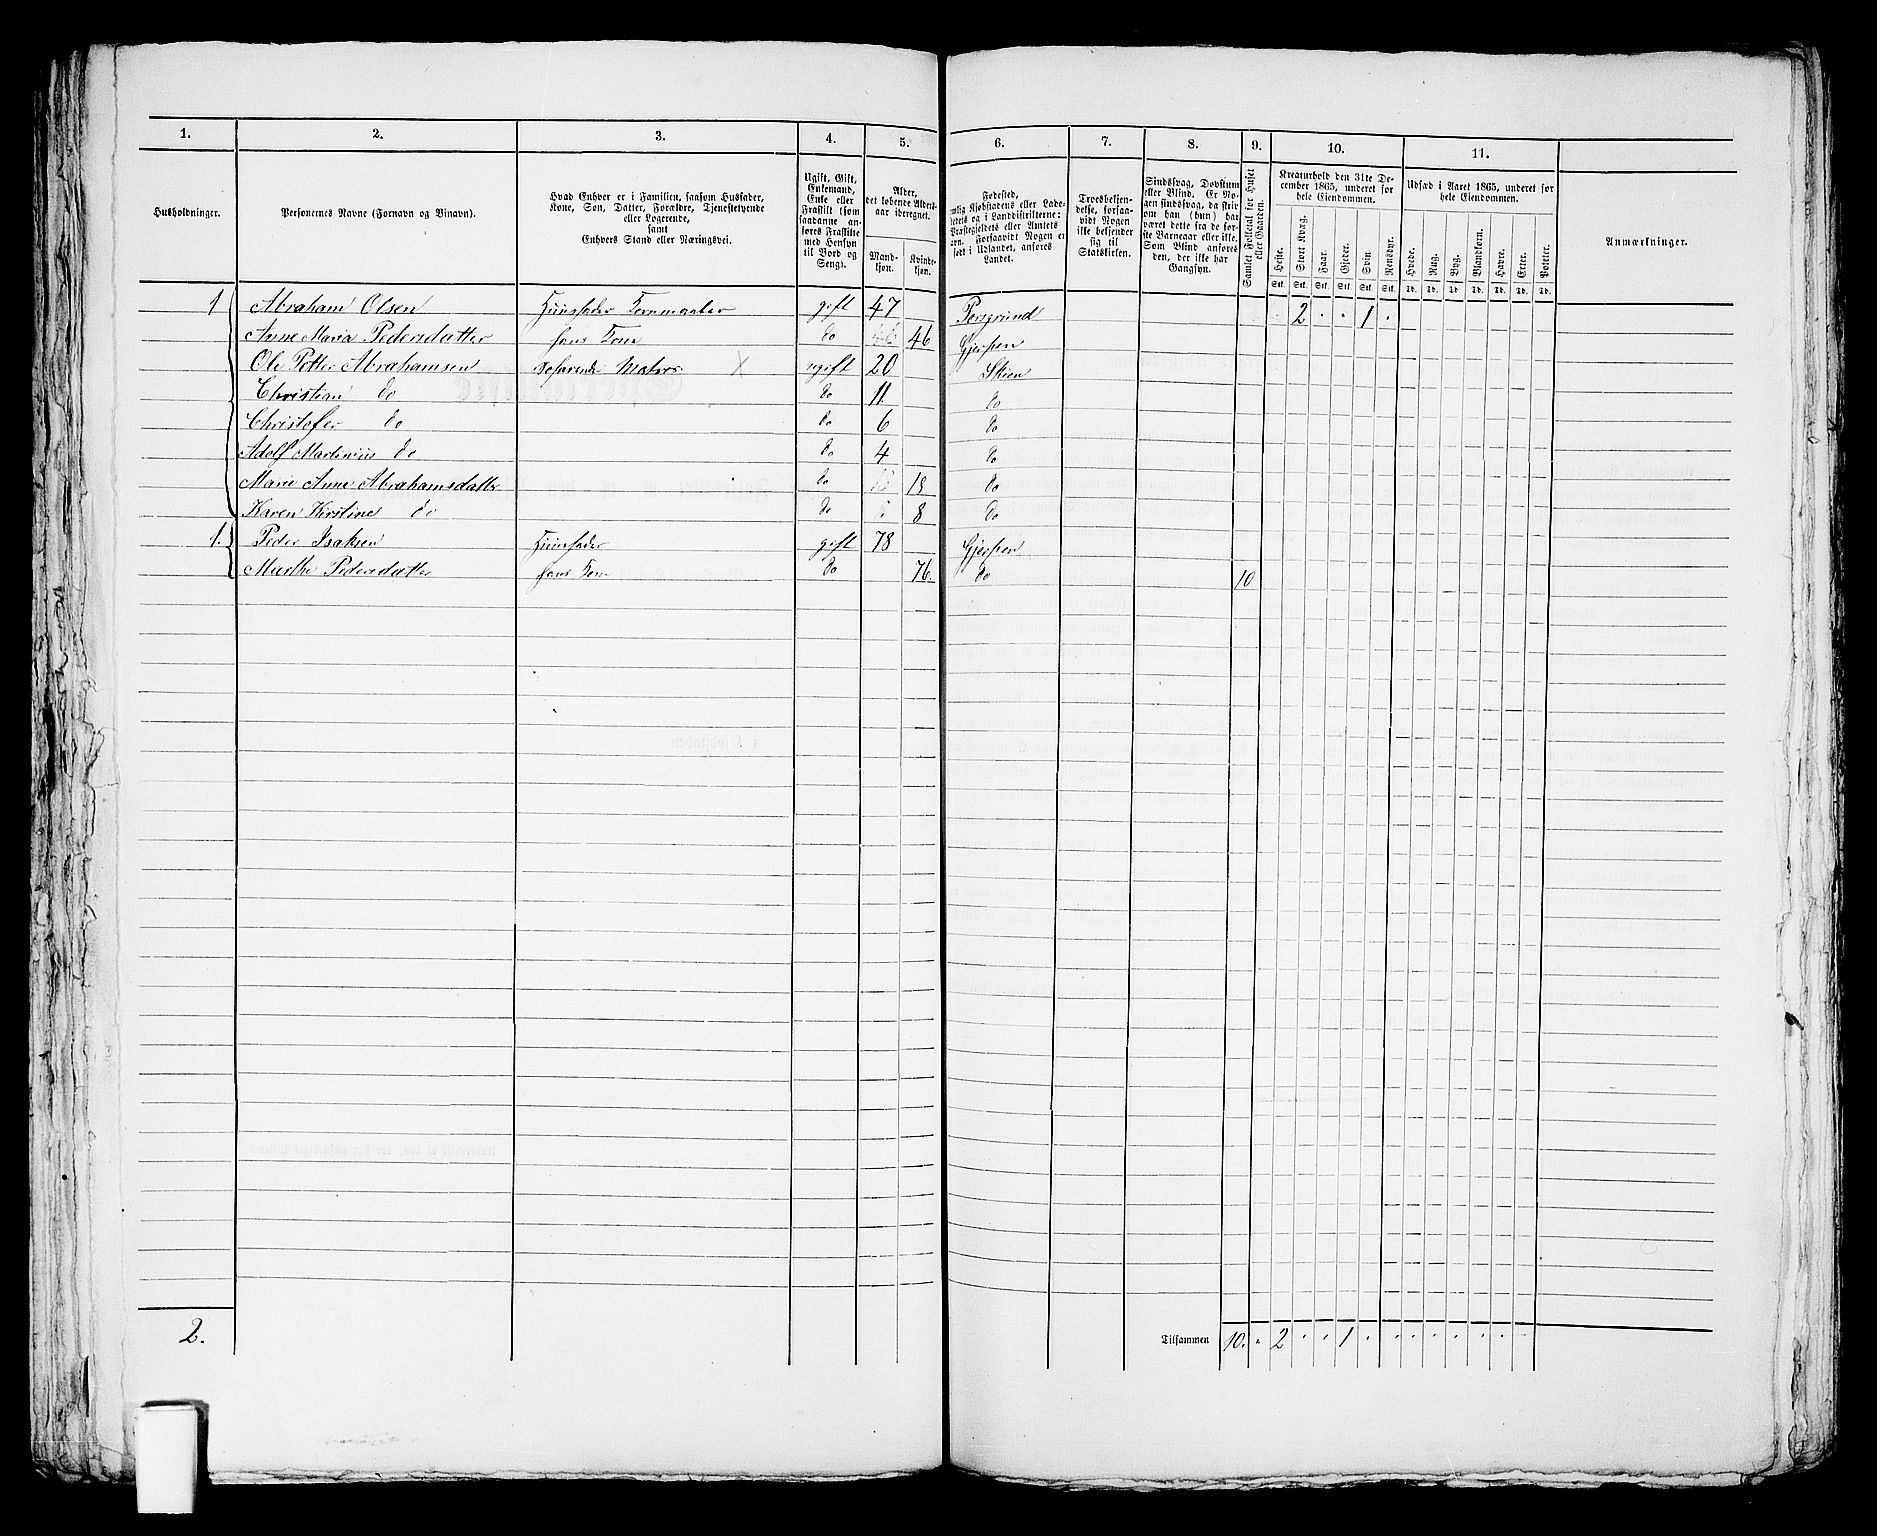 1. 2. 3. 4. 5. 6. 7. 8. 9. 10. 11.
Husholdninger.
Personernes Navne (Fornavn og Vinavn).
Hvad Enhver er i Familien, saasom Husfader,
Kone, Søn, Datter, Forældre, Tjenestetyende
eller Logerende,
samt
Enhvers Stand eller Næringsvei.
Ugift, Gift,
Enkemand,
Enke eller
Fraskilt (som
saadanne an-
føres Fraskilte
med Hensyn
til Bord og
Seng).
Alder,
det løbende Alders-
aar iberegnet.
Mand-
kjøn.
Kvinde-
kjøn.
Fødested,
nemlig Kjøbstadens eller Lade-
stedets og i Landdistrikterne:
Præstegjeldets eller Amtets
Navn. Forsaavidt Nogen er
født i Udlandet, anføres
Landet.
Troesbekjen-
delse, forsaa-
vidt Nogen
ikke bekjender
sig til
Statskirken.
Sindssvag, Døvstum
eller Blind. Er No-
gen sindssvag, da skriv
om han (hun) har
været dette fra de før-
ste Barneaar eller ikke.
Som Blind anføres
den, der ikke har
Gangsyn.
Samlet Folketal for Huset
eller Gaarden.
Kreaturhold den 31te De-
cember 1865, underet for
hele Eiendommen.
Heste. Stort Kvæg. Faar. Gjeder. Svin. Rensdyr.
Stk. Stk. Stk. Stk. Stk. Stk.
Udsæd i Aaret 1865, underet for
hele Eiendommen.
Hvede. Rug. Byg. Blandkorn. Havre. Erter. Poteter.
Td. Td. Td. Td. Td. Td. Td.
Anmærkninger.
1 Abraham Olsen Huusfader gift 47 Porsgrund 2 1
Anne Maria Pedersdatter hans Kone do 46 Gjerpen
Ole Petter Abrahamsen Søfarende Matros X ugift 20 Skien
Christian do do 11. do
Christofer do do 6 do
Adolf Martinius do do 4 do
Marie Anne Abrahamsdatter do 18 do
Karen Kirstine do do 8 do
1. Peder Isaksen Huusfader gift 78 Gjerpen
Marthe Pedersdatter hans Kone do 76. do 10
2. Tilsammen 10. 2 1